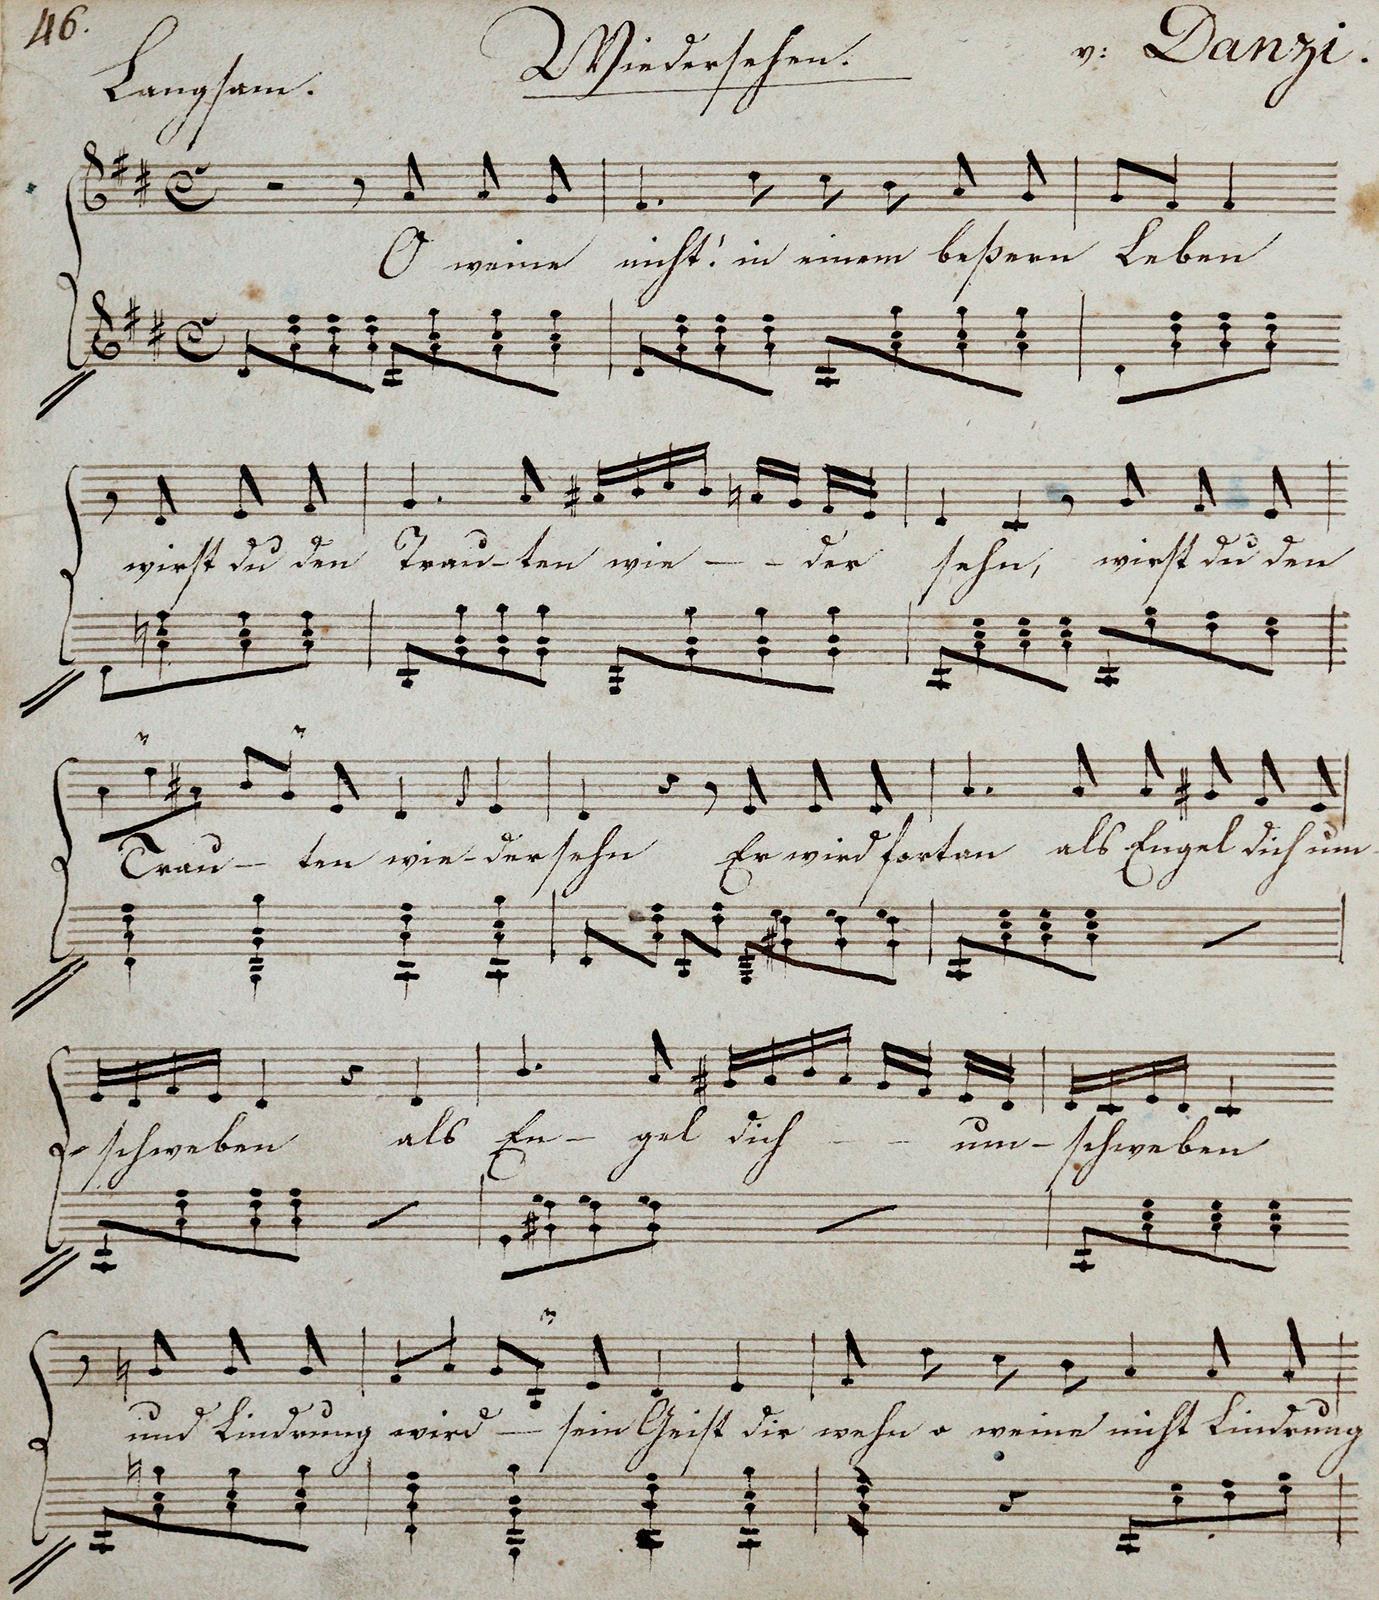 46.
Wiedersehen.
v: Danzi.
Langsam.
O weine nicht! in einem beßern Leben
wirst du den Trau-ten wie - - der sehn, wirst du den
Trau - ten wie-dersehn Er wird fortan als Engel dich um-
schweben als En - gel dich - - um-schweben
und Lindrung wird - sein Geist dir wehn o weine nicht Lindrung